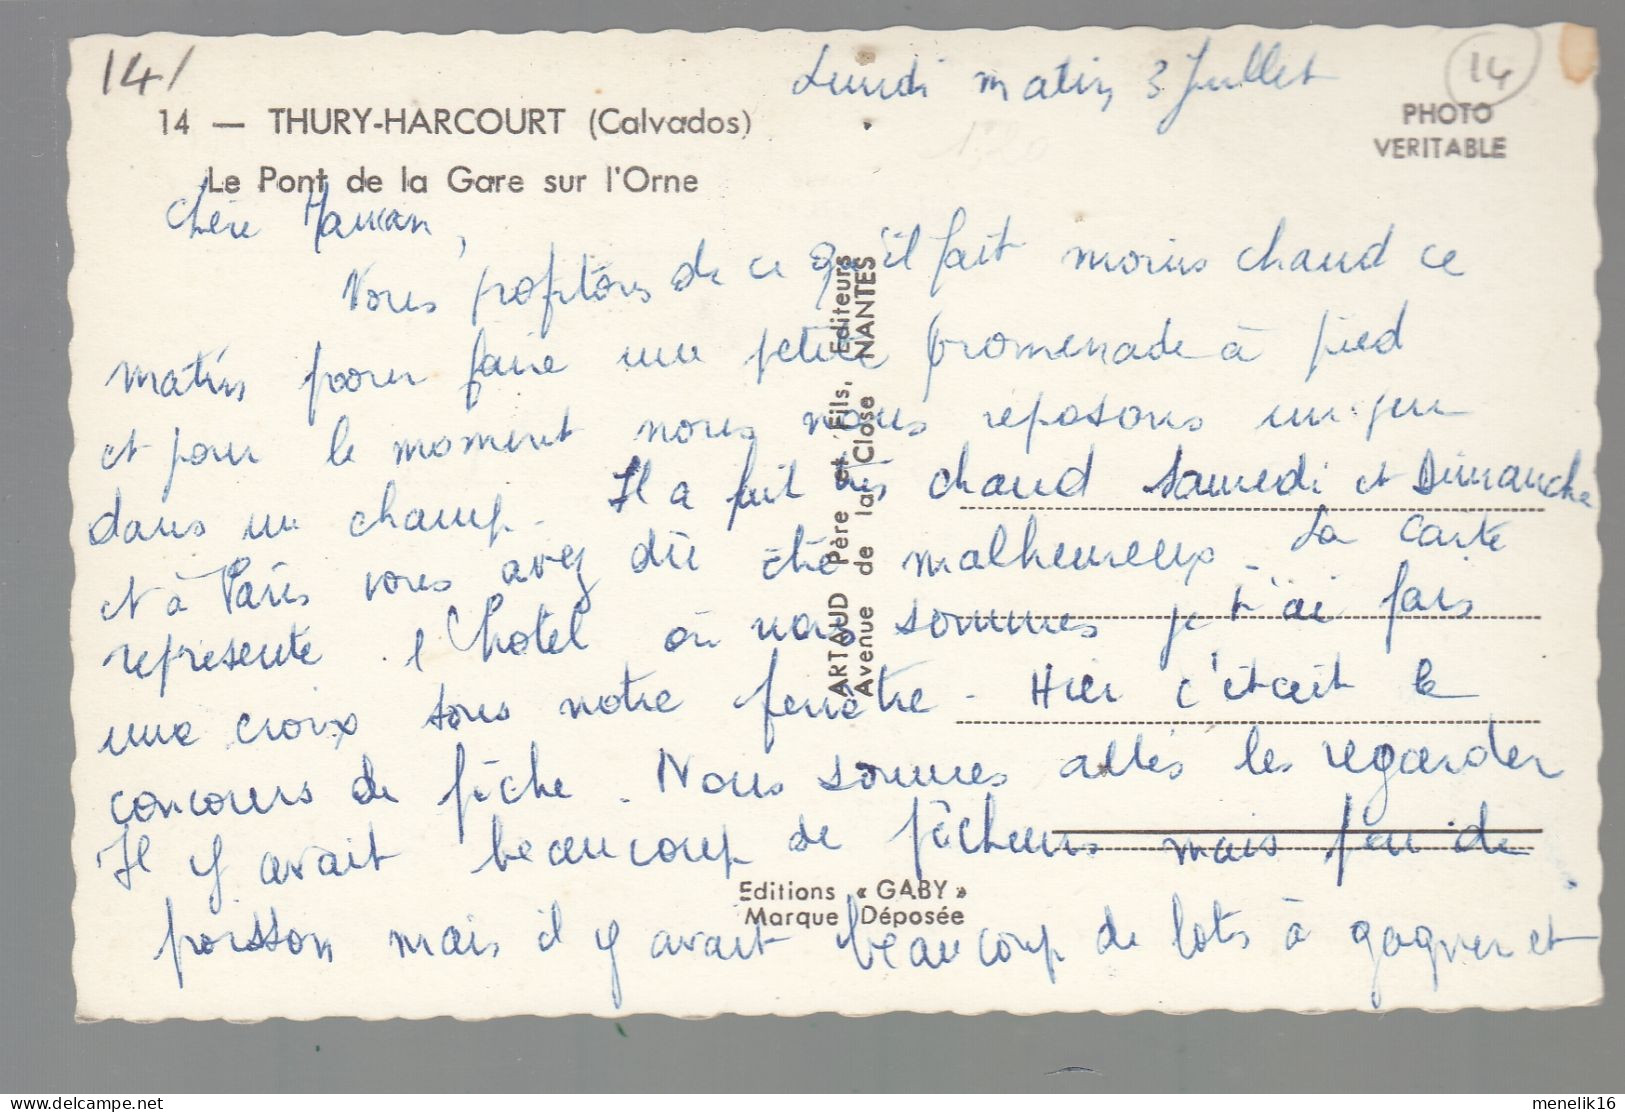 14/
Lundi matin 3 Juillet
14
14 — THURY-HARCOURT (Calvados)
PHOTO
VERITABLE
Le Pont de la Gare sur l'Orne
Chère Maman,
Nous profitons de ce qu'il fait moins chaud ce
matin pour faire une petite promenade à pied
et pour le moment nous nous reposons un peu
dans un champ. Il a fait très chaud Samedi et Dimanche
et à Paris vous avez dû être malheureux. La carte
représente l'hôtel où nous sommes je t'ai fais
une croix sous notre fenêtre - Hier c'était le
concours de pêche. Nous sommes allés les regarder
Il y avait beaucoup de pêcheurs mais peu de
poisson mais il y avait beaucoup de lots à gagner et
ARTAUD Père et Fils, Editeurs
Avenue de la Close NANTES
Editions « GABY »
Marque Déposée
delcampe.net
menelik16